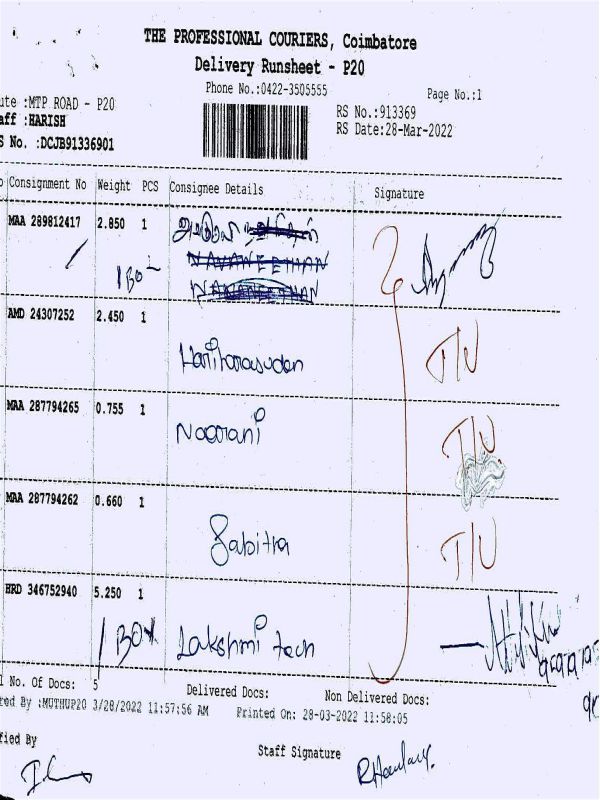 THE PROFESSIONAL COURIERS, Coimbatore
Delivery Runsheet - P20
Phone No.:0422-3505555
Page No.:1
ute :MTP ROAD - P20
RS No.:913369
aff :HARISH
RS Date:28-Mar-2022
S No. :DCJB91336901
o Consignment No Weight PCS Consignee Details Signature
MAA 289812417 2.850 1
NAVANEETHAN
1 BO
NAVANEETHAN
AMD 24307252 2.450 1
Hariharasudan
T/U
MAA 287794265 0.755 1
Noorani
T/U
MAA 287794262 0.660 1
Sabitra
T/U
HRD 346752940 5.250 1
1 BOX Lakshmi tech
l No. Of Docs: 5 Delivered Docs: Non Delivered Docs:
red By :MUTHUP20 3/28/2022 11:57:56 AM Printed On: 28-03-2022 11:58:05
fied By
Staff Signature